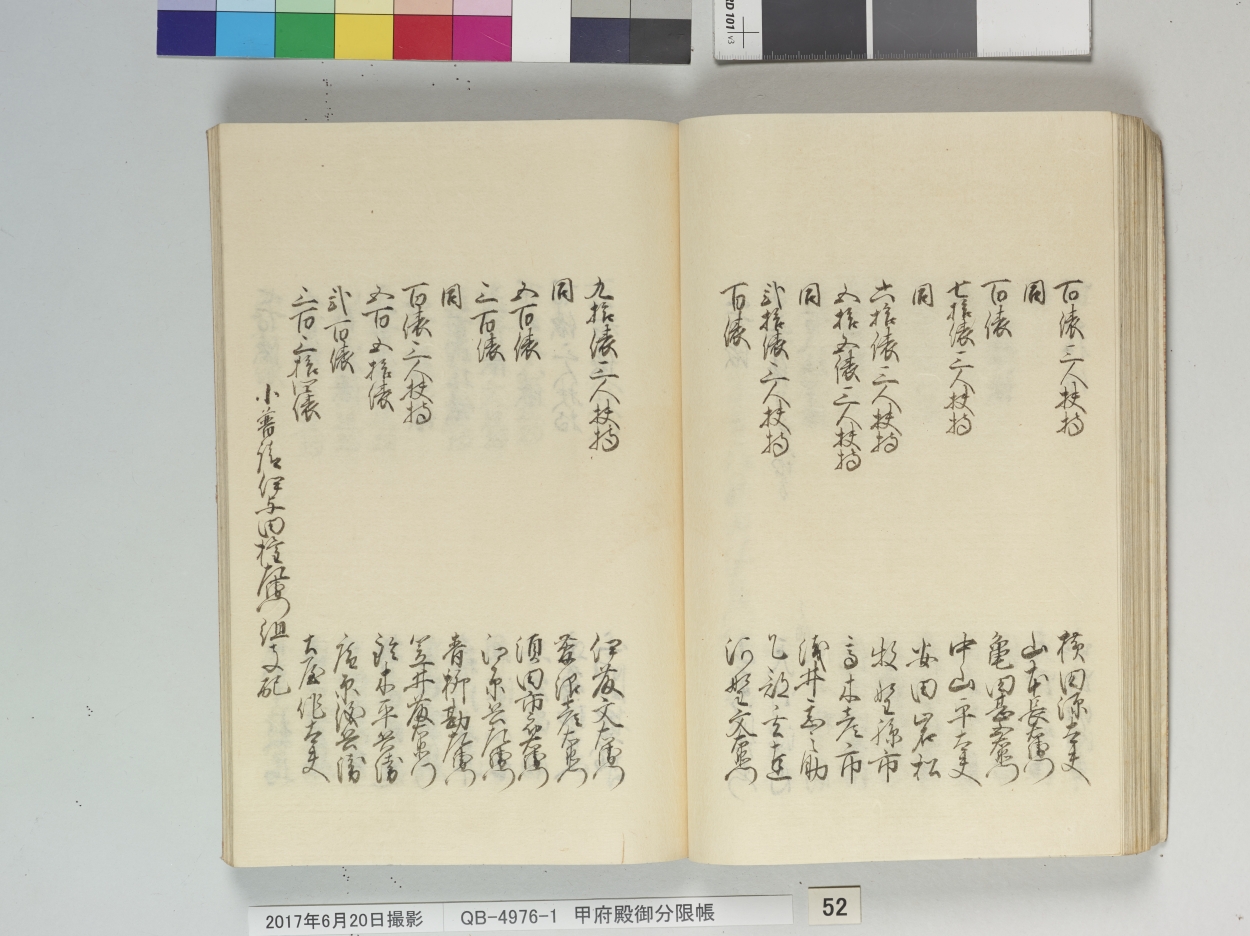 百俵三人扶持 横田源太夫
同 山本長左衛門
百俵 亀田甚右衛門
七拾俵三人扶持 中山平太夫
同 安田岩松
六拾俵三人扶持 牧野孫市
五拾五俵三人扶持 高木彦市
同 浅井喜之助
弐拾俵三人扶持
百俵 河野文右衛門
九拾俵三人扶持 伊藤文左衛門
同 彦右衛門
五百俵 須田市左衛門
三百俵
同 青柳勘左衛門
百俵三人扶持 笠井藤右衛門
五百五拾俵 鈴木平兵衛
弐百俵
三百三拾四俵 大屋作太夫
小普請伊与田杢左衛門組支配
2017年6月20日撮影 QB-4976-1 甲府殿御分限帳
52
RD 101
v3